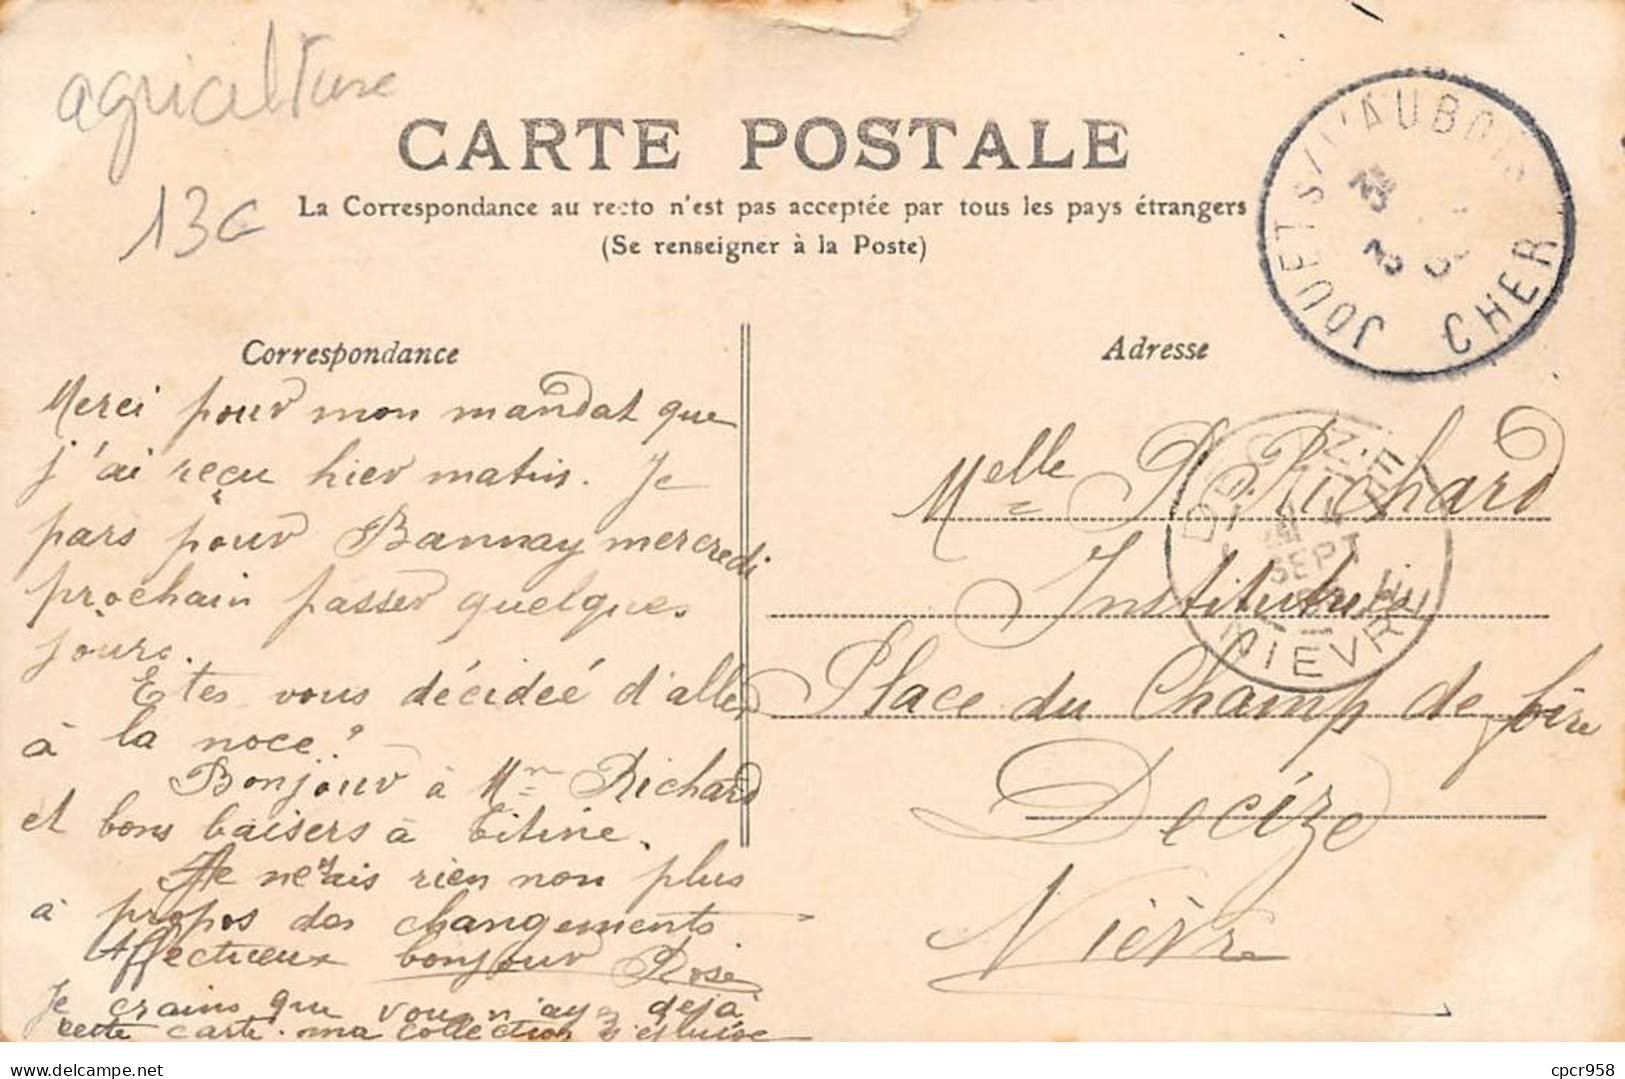 agriculture
13c
CARTE POSTALE
La Correspondance au recto n'est pas acceptée par tous les pays étrangers
(Se renseigner à la Poste)
JOUET S/ L'AUBOIS
CHER
Correspondance
Merci pour mon mandat que
j'ai reçu hier matin. Je
pars pour Bannay mercredi
prochain passer quelques
jours.
Etes vous décideé d'aller
à la noce?
Bonjour à Mr Richard
et bons baisers à Titine.
Je ne sais rien non plus
à propos des changements
Affectueux bonjour Rose
Je crains que vous n'ayez dejà
cette carte. ma collection s'épuise
Adresse
Melle Richard
Institutrice
Place du Champ de foire
Decize
Nièvre
DECIZE
SEPT
NIEVRE
delcampe.net
cpcr958